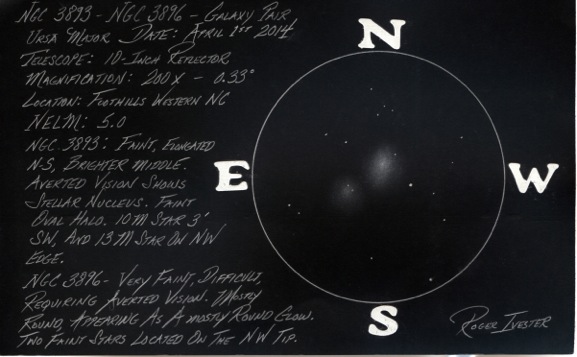 NGC 3893 - NGC 3896 - GALAXY PAIR
URSA MAJOR DATE: APRIL 1ST 2014
TELESCOPE: 10-INCH REFLECTOR
MAGNIFICATION: 200X - 0.33°
LOCATION: FOOTHILLS WESTERN NC
NELM: 5.0
NGC 3893: FAINT, ELONGATED
N-S, BRIGHTER MIDDLE.
AVERTED VISION SHOWS
STELLAR NUCLEUS. FAINT
OVAL HALO. 10 M STAR 3'
SW, AND 13 M STAR ON NW
EDGE.
NGC 3896 - VERY FAINT, DIFFICULT,
REQUIRING AVERTED VISION. MOSTLY
ROUND, APPEARING AS A MOSTLY ROUND GLOW.
TWO FAINT STARS LOCATED ON THE NW TIP.
N
E
W
S
ROGER IVESTER